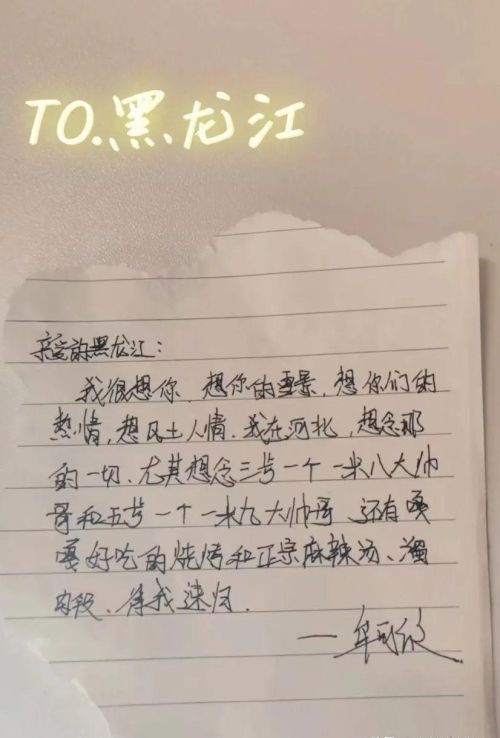 TO.黑龙江
亲爱的黑龙江：
我很想你、想你的雪景，想你们的
热情，想风土人情、我在河北，想念那
的一切、尤其想念三号一个一米八大帅
哥和五号一个一米九大帅哥、还有嘎
嘎好吃的烧烤和正宗麻辣汤、锅
包段、等我速归.
——牟